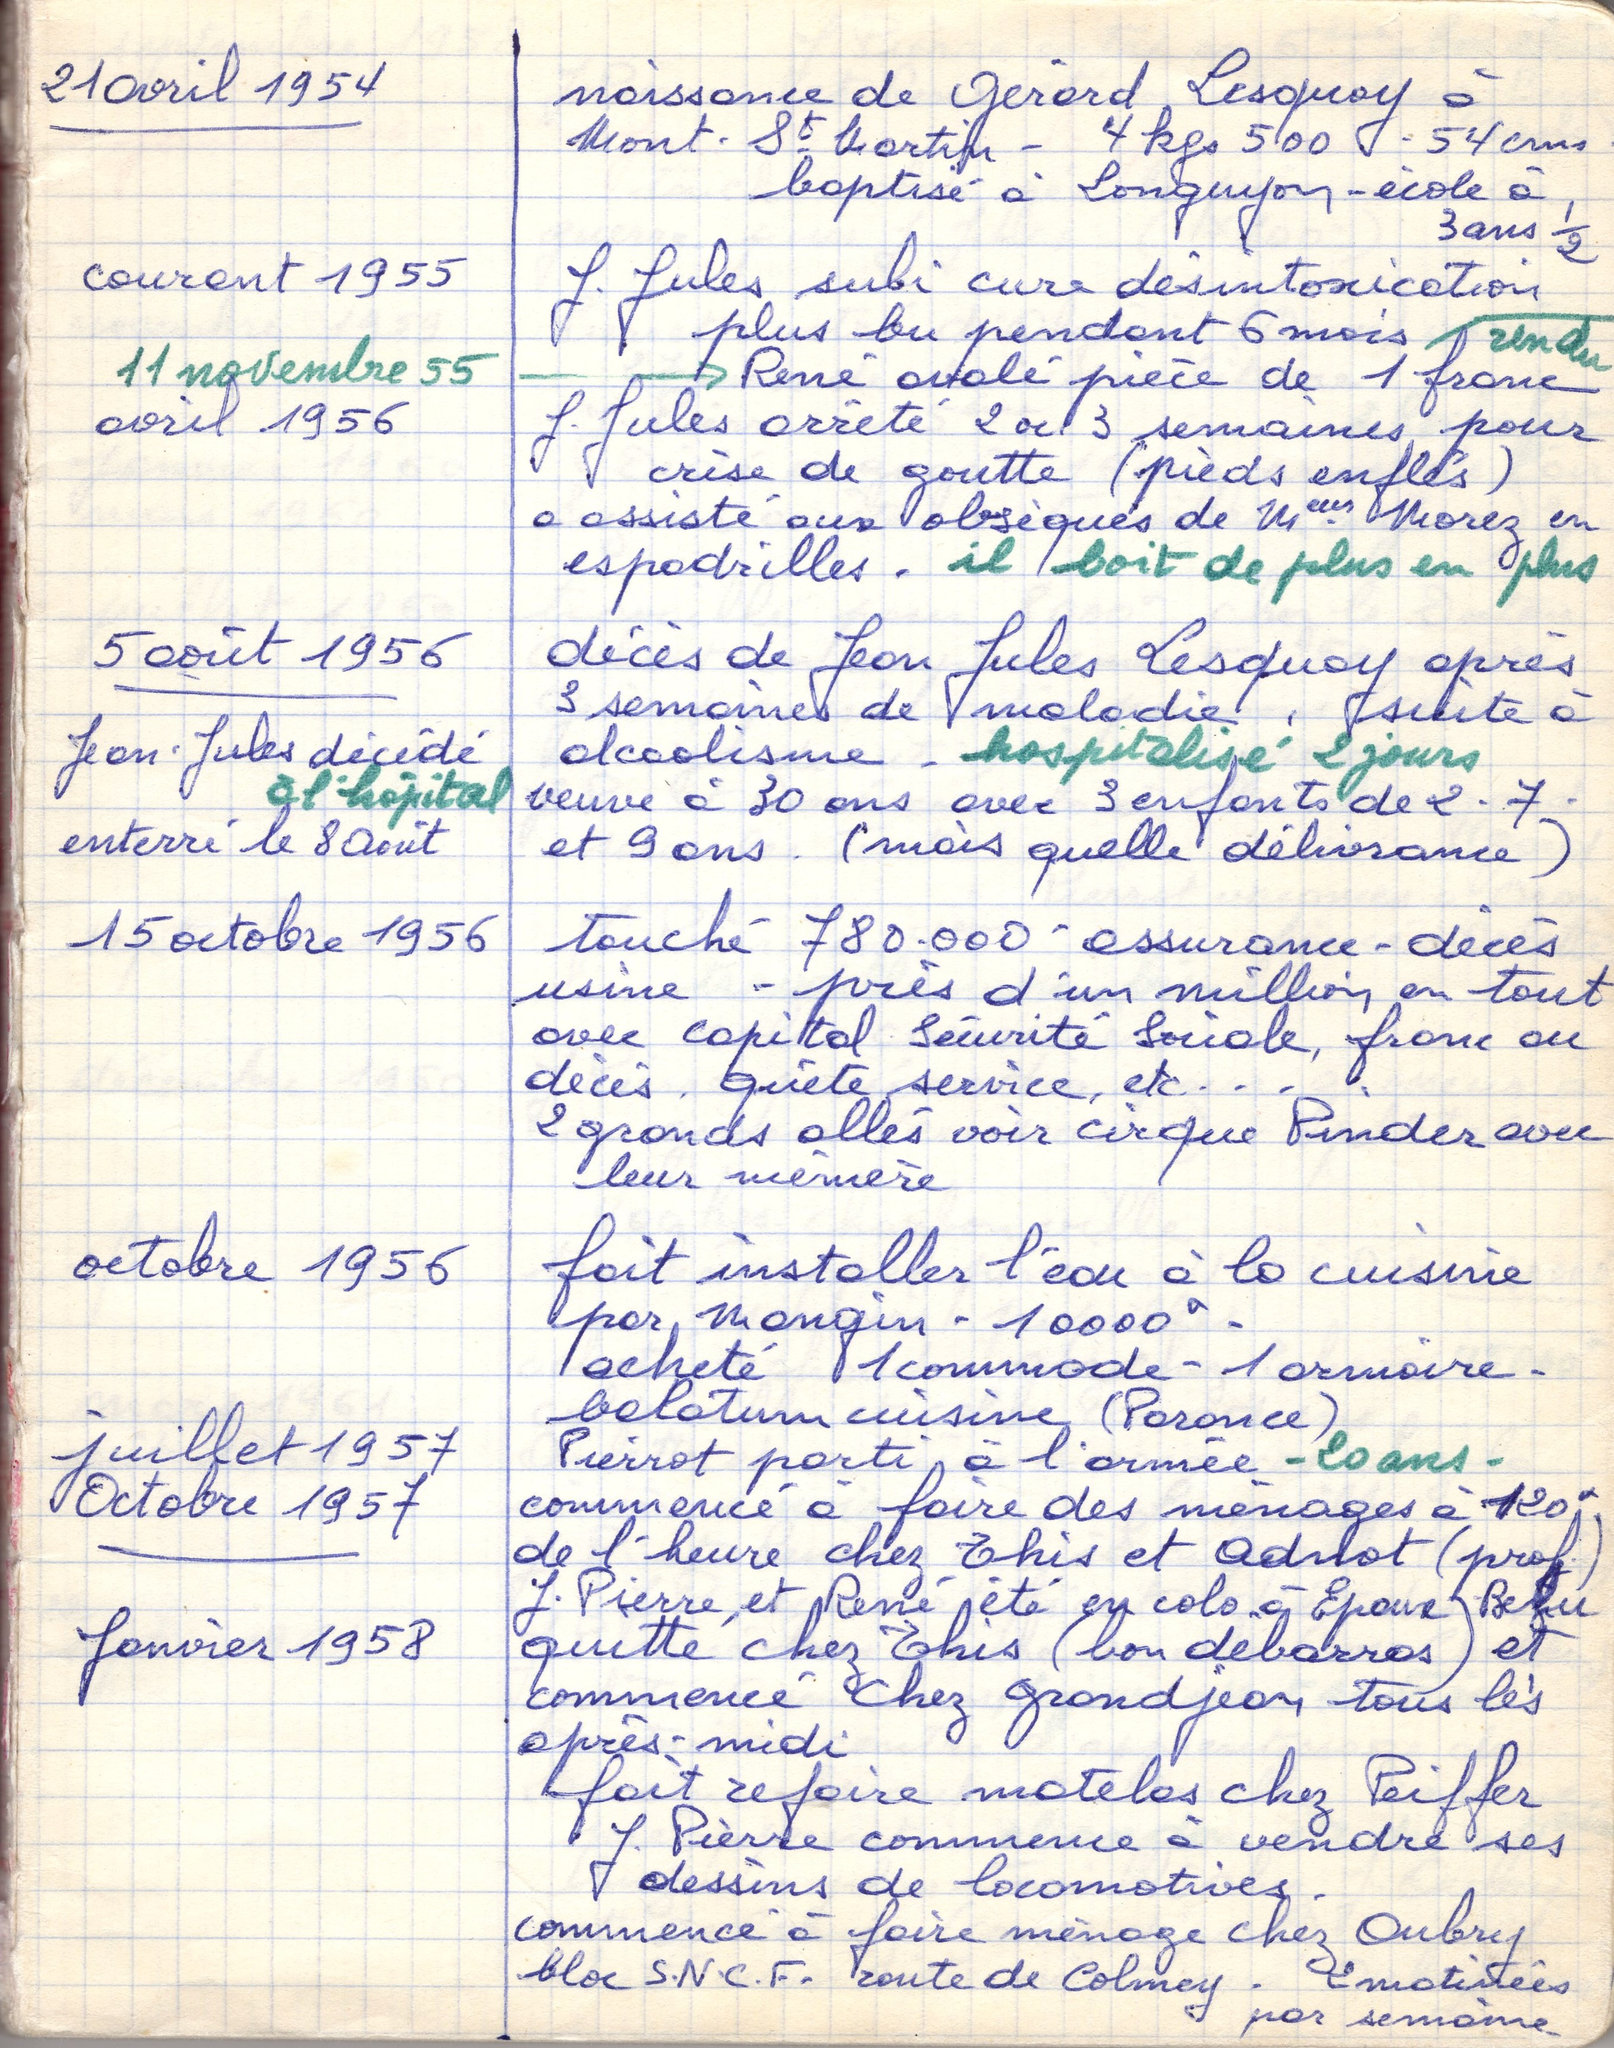 21 avril 1954 naissance de Gérard Lesquoy à
Mont-St Martin - 4 kgs 500 - 54 cms -
baptisé à Longuyon - école à
3 ans 1/2
courant 1955 J. Jules subi cure désintoxication
plus bu pendant 6 mois rendu
11 novembre 55 → René avalé pièce de 1 franc
avril 1956 J. Jules arrêté 2 ou 3 semaines pour
crise de goutte (pieds enflés)
a assisté aux obsèques de Morez en
espadrilles. il boit de plus en plus
5 août 1956 décès de Jean Jules Lesquoy après
3 semaines de maladie, suite à
Jean-Jules décédé alcoolisme - hospitalisé 2 jours
à l'hôpital veuve à 30 ans avec 3 enfants de 2 - 7 -
enterré le 8 août et 9 ans. (mais quelle délivrance)
15 octobre 1956 touché 780.000 assurance-décès
usine - près d'un million en tout
avec capital Sécurité Sociale, franc au
décès, quête service, etc....
2 grands allés voir cirque Pinder avec
leur mémère
octobre 1956 fait installer l'eau à la cuisine
par Mangin - 10000 -
acheté 1 commode - 1 armoire -
balatum cuisine (Parance)
juillet 1957 Pierrot parti à l'armée - 20 ans -
Octobre 1957 commencé à faire des ménages à 120
de l'heure chez Ehis et Adnot (prof.)
J. Pierre et René été en colo à
Janvier 1958 quitté chez Ehis (bon débarras) et
commencé chez Grandjean tous les
après-midi
fait refaire matelas chez Peiffer
J. Pierre commence à vendre ses
dessins de locomotives.
commencé à faire ménage chez Aubry
bloc S.N.C.F. route de Colmey. 2 matinées
par semaine